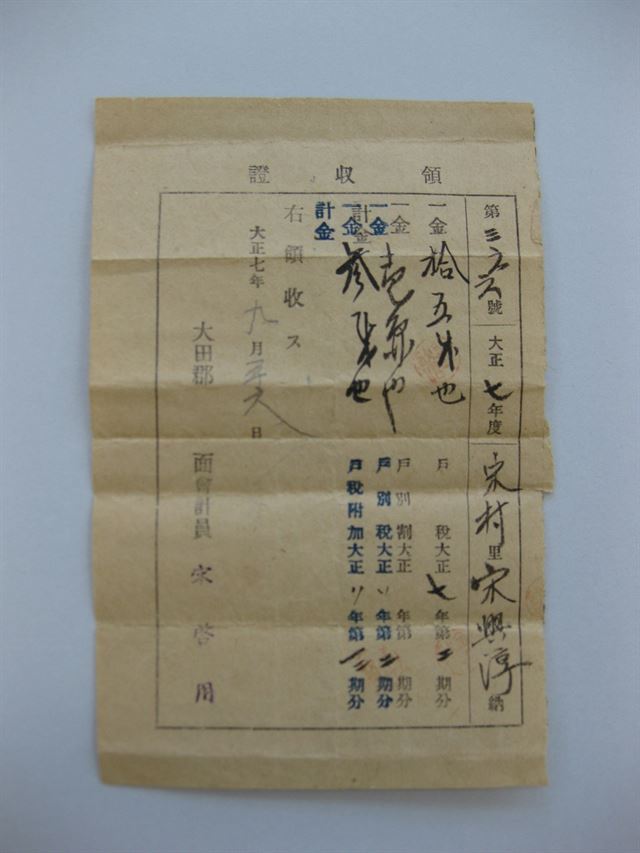 領收證
第三二六號 大正七年度 宋村里 宋興淳 納
一金 拾五戋也 戶稅大正七年第二期分
一金 戶別割大正 年第 期分
一金 壱 也 戶別稅大正〃年第二期分
計金
一金 参戋也 戶稅附加大正〃年第二期分
計金
右領收ス
大正七年九月 六日
大田郡 面會計員 宋啓用